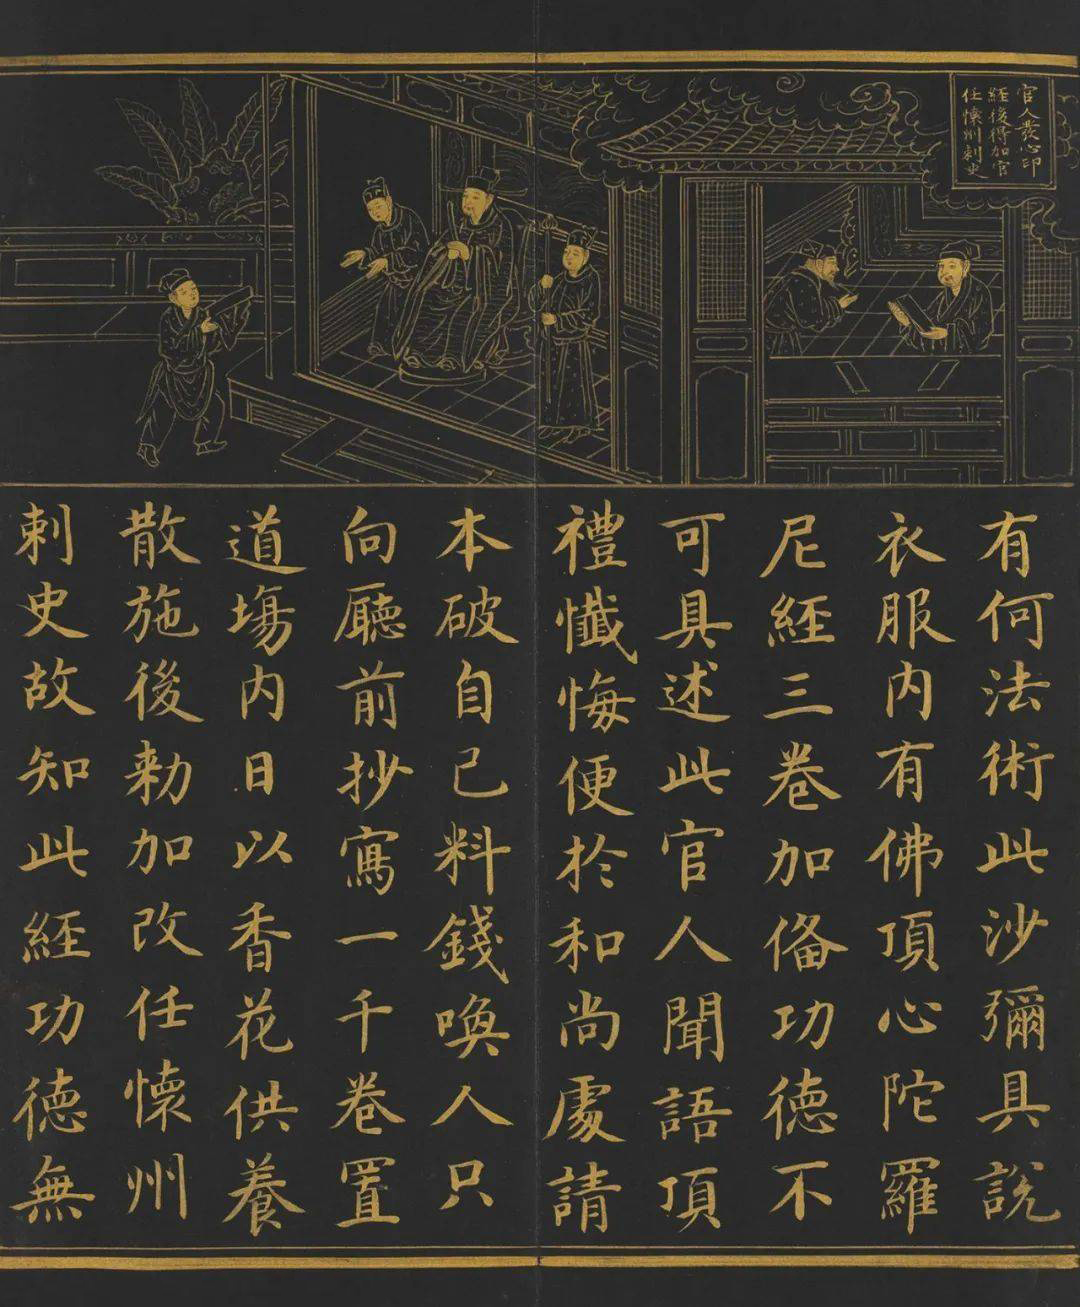 官人發心印
經後得加官
任懷州刺史
有何法術此沙彌具說
衣服内有佛頂心陀羅
尼經三卷加俻功德不
可具述此官人聞語頂
禮懺悔便於和尚處請
本破自己料錢喚人只
向廳前抄寫一千卷置
道塲内日以香花供養
散施後勑加改任懷州
刺史故知此經功德無